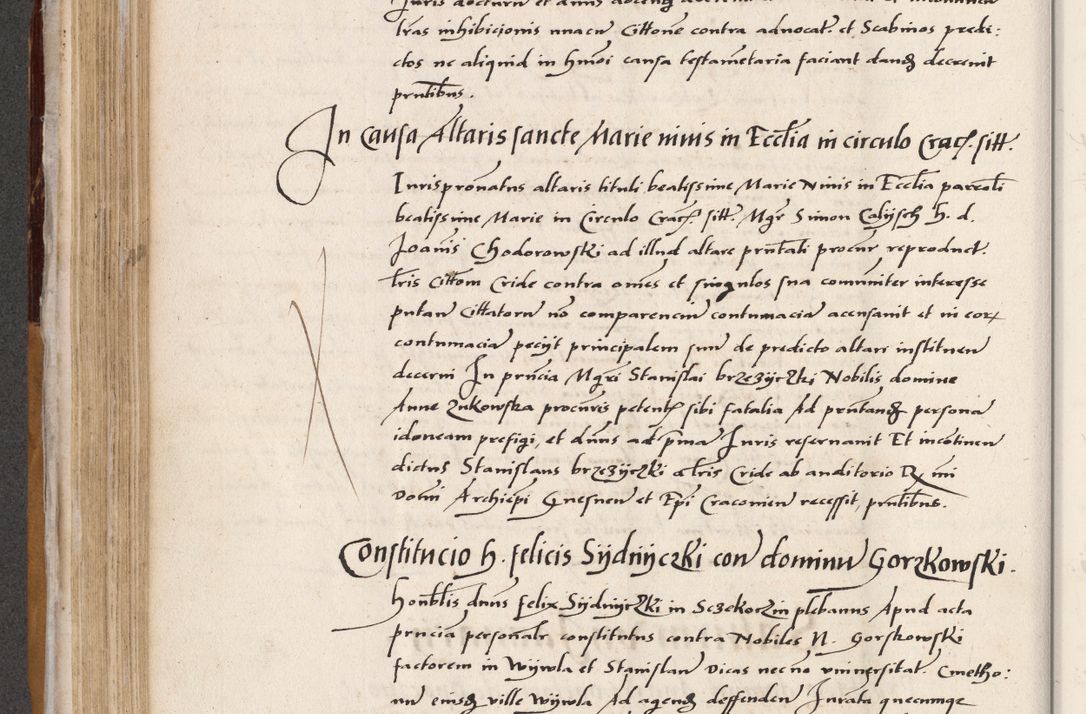 Juris doctorum et
tras inhibicionis unacu Cittone contra advocat. et Scabinos predi:
ctos ne aliquid in hmoi causa testametaria faciant dand decrevit
pntibus.
In causa Altaris sancte Marie nivis in Ecclia in circulo Crac. sitt.
Jurispronatus altaris tituli beatissime Marie Nivis in Ecclia parrali
beatissime Marie in Circulo Crac. sitt. Mgr Simon Calijsch h. d.
Joanis Chodorowski ad illud altare pntati procur reproduct.
lris Cittom Cride contra omes et singulos sua comuniter interesse
putan Cittatoru no comparenciu contumacia accusavit et in eor
contumacia pecijt principalem suu de predicto altari instituen
decerni In pncia Mgri Stanislai brzezijczki Nobilis domine
Anne Zukowska procuris petent sibi fatalia Ad pntand persona
idoneam prefigi, et duns ad pma Juris reservanit Et incotinen
dictus Stanislaus brzezijczki a lris Cride ab auditorio R mi
Domi Archiepi Gnesnen et Epi Cracovien recessit, pntibus.
Constitucio h. felicis Sijdnijczki con dominu Gorzkowski.
honblis dnus felix Sijdnijczki in Sczekoczin plebanus Apud acta
pncia personalr constitutus contra Nobiles N. Gorskowski
factorem in Wijwla et Stanislau Dicas necno universitat. Cmetho:
nu eiusd ville Wijwla Ad agend deffenden Jurata quecunqe